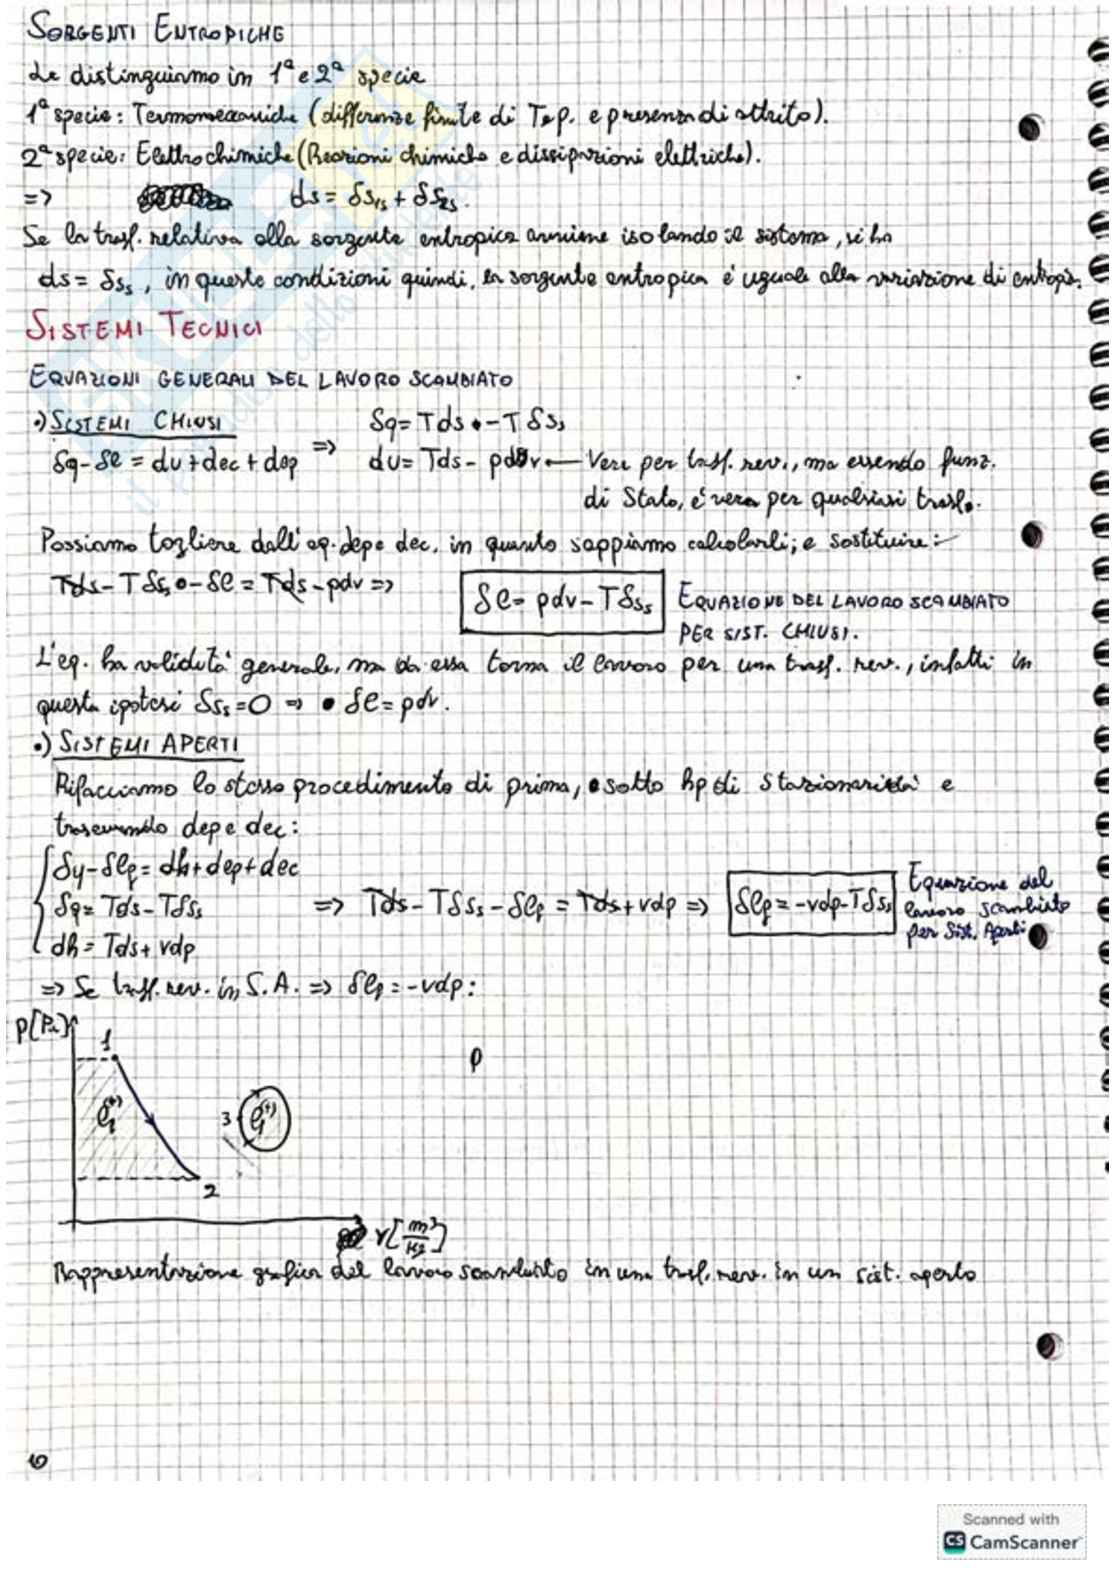 SORGENTI ENTROPICHE
Le distinguiamo in 1ª e 2ª specie
1ª specie: Termomeccaniche (differenze finite di T e p. e presenza di attrito).
2ª specie: Elettrochimiche (Reazioni chimiche e dissipazioni elettriche).
=> ds = δs₁ₛ + δs₂ₛ.
Se la trasf. relativa alla sorgente entropica avviene isolando il sistema, si ha
ds = δsₛ, in queste condizioni quindi, la sorgente entropica é uguale alla variazione di entropia.
SISTEMI TECNICI
EQUAZIONI GENERALI DEL LAVORO SCAMBIATO
•) SISTEMI CHIUSI
δq = Tds - Tδsₛ
δq - δl = du + dec + dep =>
du = Tds - pdv ← Vera per trasf. rev., ma essendo funz.
di Stato, é vera per qualsiasi trasf.
Possiamo togliere dall'eq. dep e dec, in quanto sappiamo calcolarli; e sostituire:
Tds - Tδsₛ - δl = Tds - pdv =>
δl = pdv - Tδsₛ
EQUAZIONE DEL LAVORO SCAMBIATO
PER SIST. CHIUSI.
L'eq. ha validitá generale, ma da essa torna il lavoro per una trasf. rev., infatti in
questa ipotesi δsₛ = 0 => δl = pdv.
•) SISTEMI APERTI
Rifacciamo lo stesso procedimento di prima, sotto hp di stazionarietá e
trascurando dep e dec:
δq - δlₚ = dh + dep + dec
δq = Tds - Tδsₛ
dh = Tds + vdp
=> Tds - Tδsₛ - δlₚ = Tds + vdp =>
δlₚ = -vdp - Tδsₛ
Equazione del
lavoro scambiato
per Sist. Aperti
=> Se trasf. rev. in S.A. => δlₚ = -vdp:
p[Pa]
1
2
3
v[m³/kg]
Rappresentazione grafica del lavoro scambiato in una trasf. rev. in un sist. aperto
Scanned with
CS CamScanner